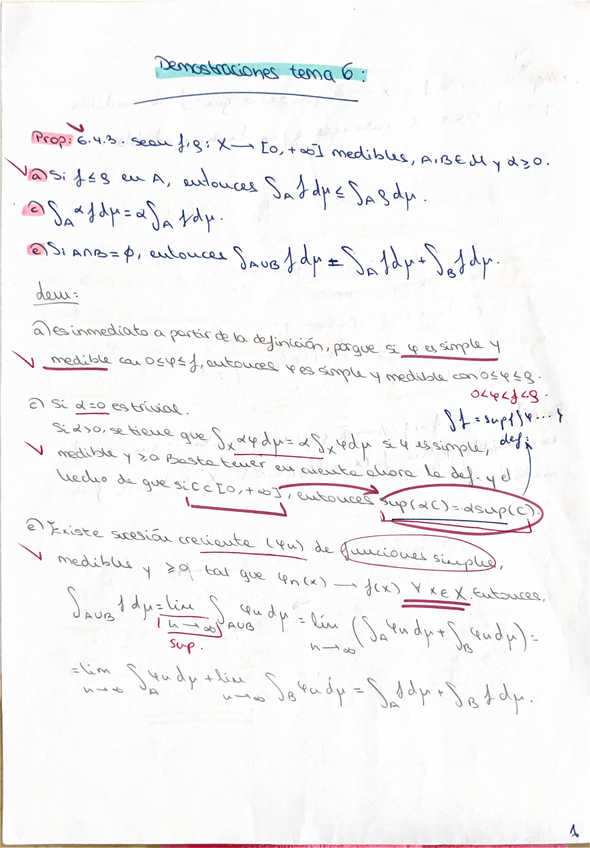 Demostraciones tema 6:
Prop: 6.4.3. sean f,g: X → [0,+∞] medibles, A,B∈M y α≥0.
a) Si f≤g en A, entonces ∫_A f dμ ≤ ∫_A g dμ.
c) ∫_A αf dμ = α∫_A f dμ.
e) Si A∩B=ϕ, entonces ∫_{A∪B} f dμ = ∫_A f dμ + ∫_B f dμ.
dem:
a) es inmediato a partir de la definición, porque si φ es simple y
medible con 0≤φ≤f, entonces φ es simple y medible con 0≤φ≤g.
0<φ<f<g.
c) Si α=0 es trivial.
∫f = sup{∫φ...}
Si α>0, se tiene que ∫_X αφdμ = α∫_X φdμ si φ es simple,
def:
medible y ≥0. Basta tener en cuenta ahora la def. y el
hecho de que si C⊂[0,+∞], entonces sup(αC)=αsup(C).
e) Existe sucesión creciente (φn) de funciones simples,
medibles y ≥0 tal que φn(x) → f(x) ∀x∈X. Entonces,
∫_{A∪B} f dμ = lim_{n→∞} ∫_{A∪B} φn dμ = lím_{n→∞} (∫_A φn dμ + ∫_B φn dμ) =
sup.
= lim_{n→∞} ∫_A φn dμ + lim_{n→∞} ∫_B φn dμ = ∫_A f dμ + ∫_B f dμ.
1